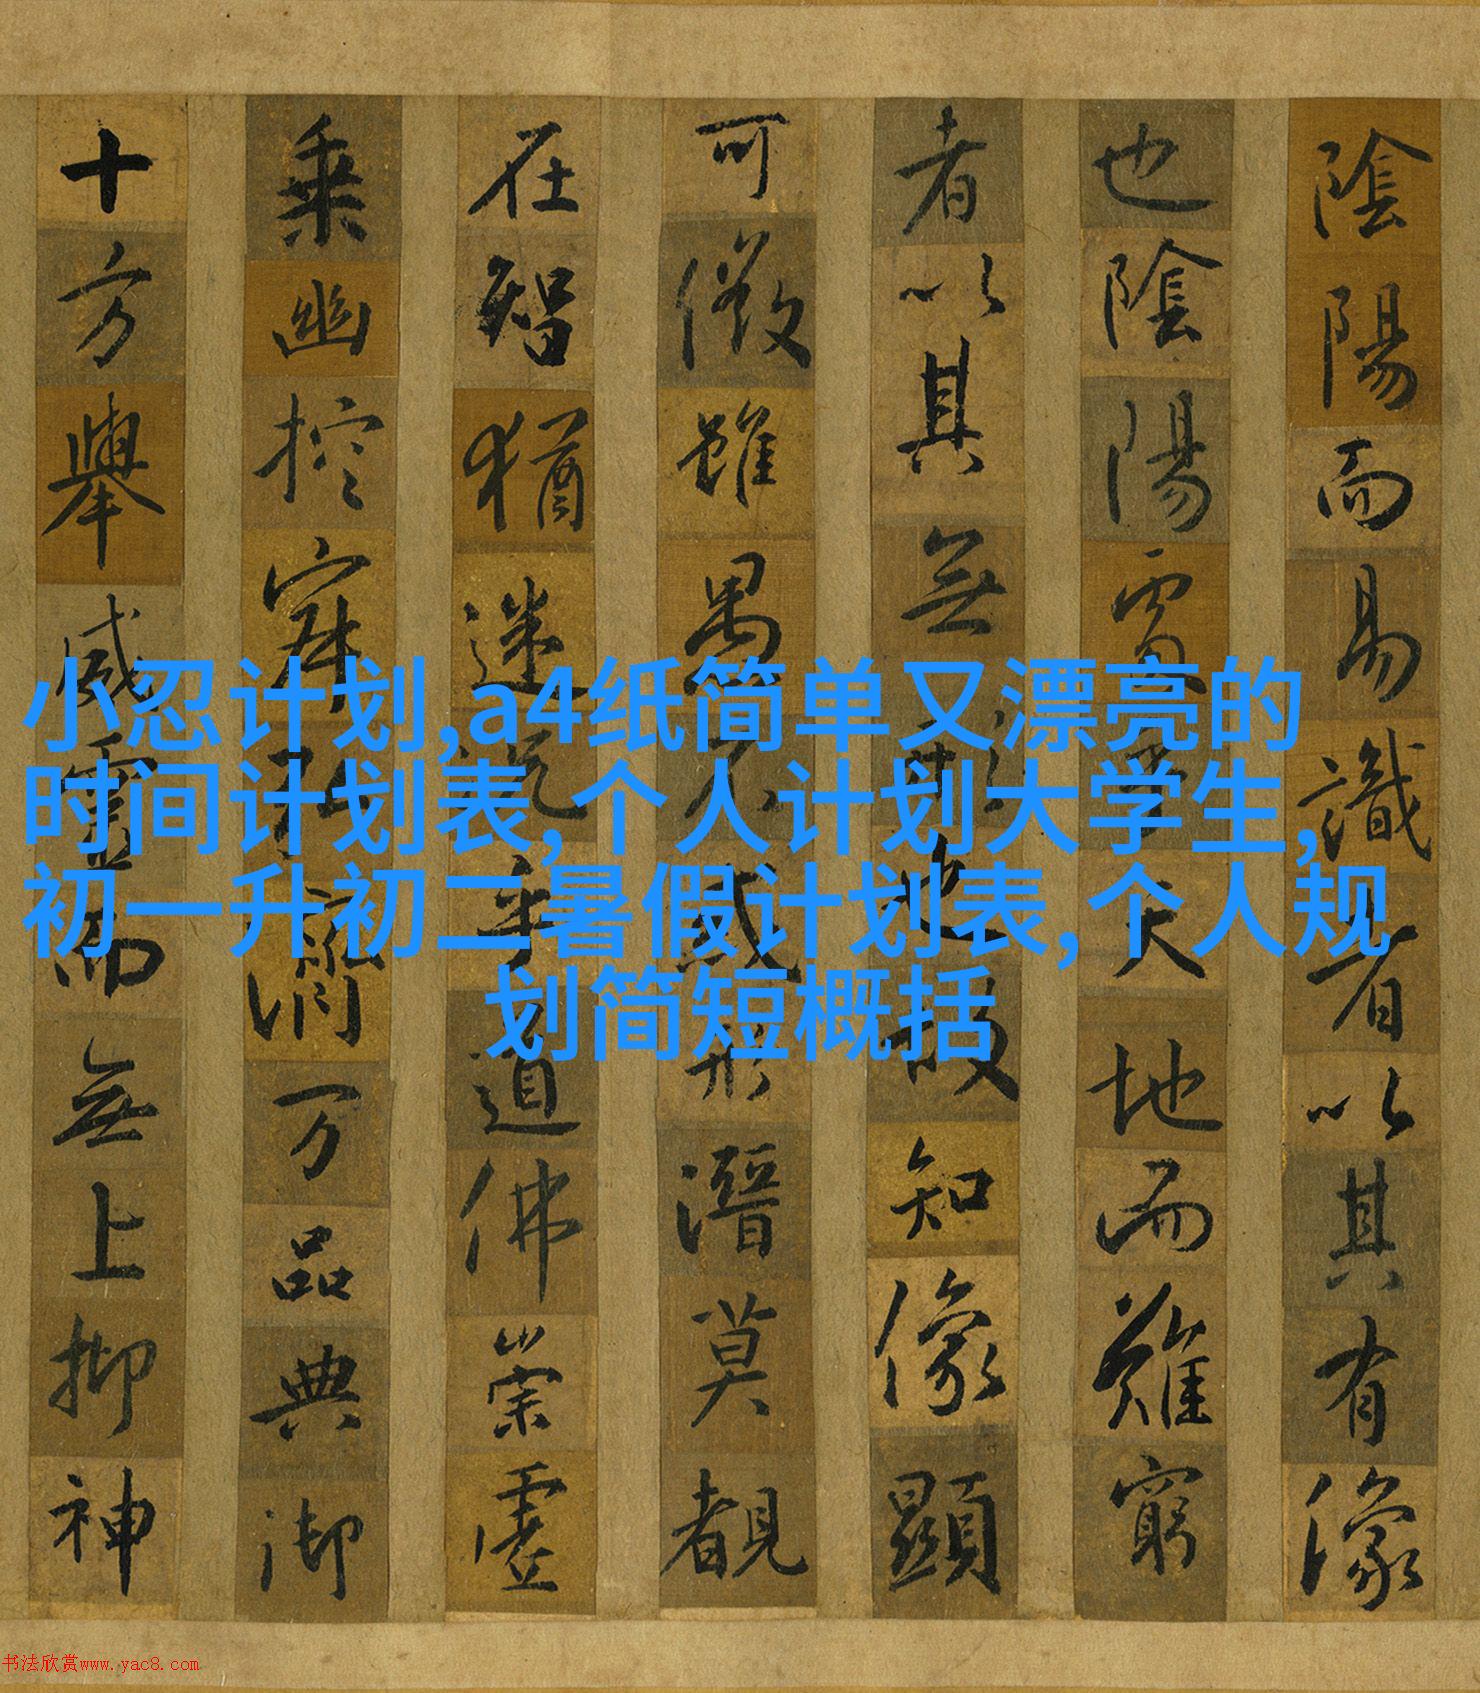 陰陽而易識者以其有像
也陰陽處乎天地而難窮
者以其無形也故知像顯
可徵雖愚不惑形潛莫覩
在智猶迷況乎道佛崇虛
乘幽控寂弘濟万品典御
十方舉威靈而無上抑神
小忍计划,a4纸简单又漂亮的
时间计划表,个人计划大学生,
初一升初二暑假计划表,个人规
划简短概括
书法欣赏www.yac8.com